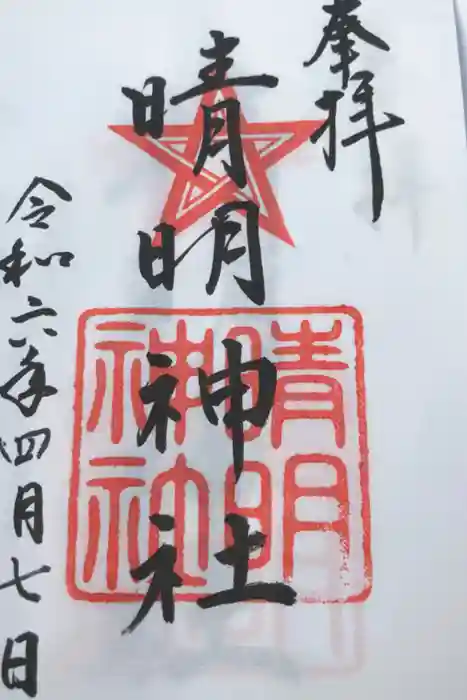 奉拝
晴明神社
晴明
神社
令和六年四月七日